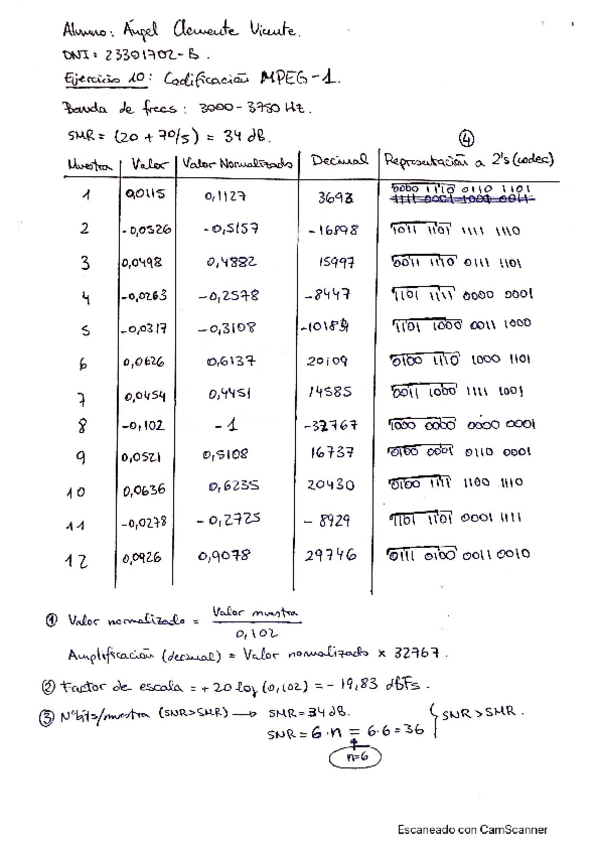 Alumno: Ángel Clemente Vicente.
DNI: 23301702-B.
Ejercicio 10: Codificación MPEG-1.
Banda de frecs: 3000-3750 Hz.
SMR = (20 + 70/5) = 34 dB.
④
Muestra Valor Valor Normalizado Decimal Representación a 2's (codec)
1 0,0115 0,1127 3693 0000 1110 0110 1101
1111 0001 1001 0011
2 -0,0526 -0,5157 -16898 1011 1101 1111 1110
3 0,0498 0,4882 15997 0011 1110 0111 1101
4 -0,0263 -0,2578 -8447 1101 1111 0000 0001
5 -0,0317 -0,3108 -10184 1101 1000 0011 1000
6 0,0626 0,6137 20109 0100 1110 1000 1101
7 0,0454 0,4451 14585 0011 1000 1111 1001
8 -0,102 -1 -32767 1000 0000 0000 0001
9 0,0521 0,5108 16737 0100 0001 0110 0001
10 0,0636 0,6235 20430 0100 1111 1100 1110
11 -0,0278 -0,2725 -8929 1101 1101 0001 1111
12 0,0926 0,9078 29746 0111 0100 0011 0010
① Valor normalizado = Valor muestra / 0,102
Amplificación (decimal) = Valor normalizado x 32767.
② Factor de escala = +20 log (0,102) = -19,83 dBFs.
③ Nº bits/muestra (SNR>SMR) → SMR = 34 dB.
SNR = 6·n = 6·6 = 36 } SNR > SMR.
n=6
Escaneado con CamScanner